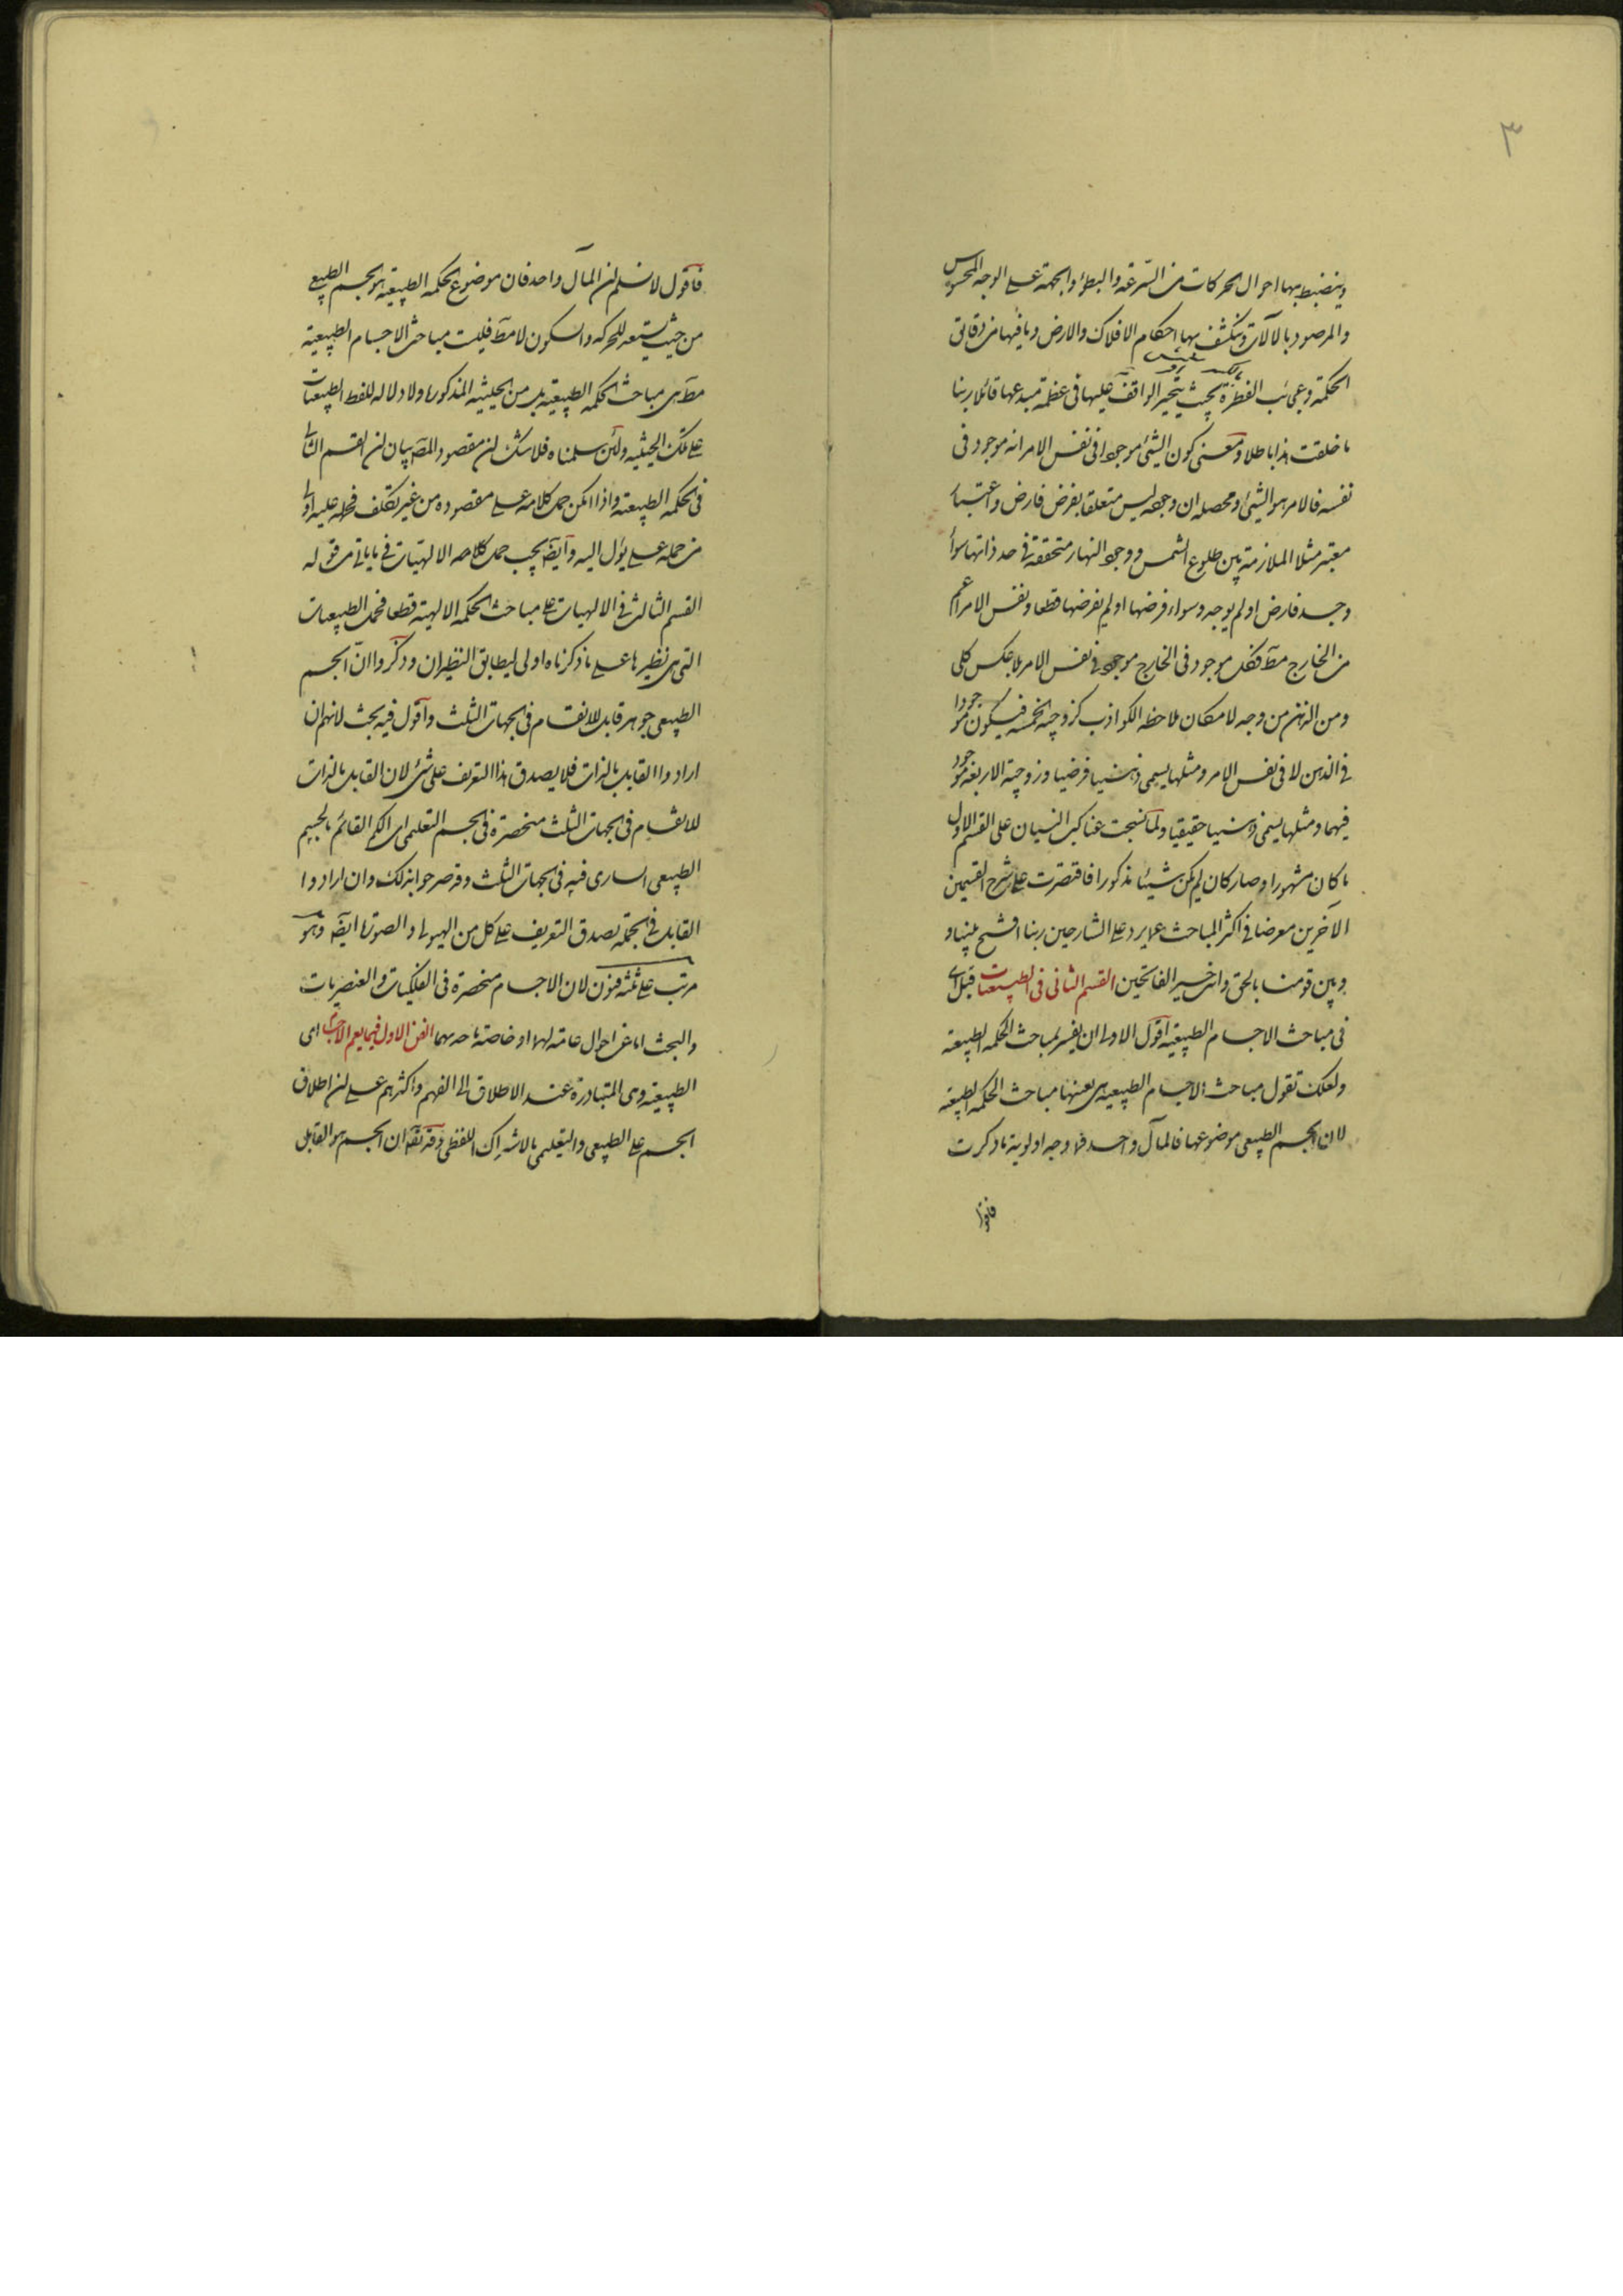 ٣
وينضبط بها احوال الحركات من السرعة والبطؤ والجهة على الوجه المحسوس
والمرصود بالآلات وينكشف بها احكام الافلاك والارض وما فيها من دقائق
الحكمة وعجائب الفطرة بحيث يتحير الواقف عليها في عظمة مبدعها قائلا ربنا
ما خلقت هذا باطلا ومعنى كون الشيئ موجودا في نفس الامر انه موجود في
نفسه فالامر هو الشيئ ومحصله ان وجوده ليس متعلقا بفرض فارض واعتبار
معتبر مثلا الملازمة بين طلوع الشمس ووجود النهار متحققة في حد ذاتها سواء
وجد فارض او لم يوجد وسواء فرضها او لم يفرضها قطعا ونفس الامر اعم
من الخارج مط فكل موجود في الخارج موجود في نفس الامر بلا عكس كلى
ومن الذهن من وجه لامكان ملاحظة الكواذب كزوجية الخمسة فيكون موجودا
في الذهن لا في نفس الامر ومثلها يسمى ذهنيا فرضيا وزوجية الاربعة موجود
فيهما ومثلها يسمى ذهنيا حقيقيا ولما نسجت عناكب النسيان على القسم الاول
ما كان مشهورا وصار كان لم يكن شيئا مذكورا فاقتصرت على شرح القسمين
الآخرين معرضا في اكثر المباحث عما يرد على الشارحين ربنا افتح بيننا و
وبين قومنا بالحق وانت خير الفاتحين القسم الثاني في الطبيعيات قيل اى
في مباحث الاجسام الطبيعية اقول الاولى ان يفسر بمباحث الحكمة الطبيعية
ولعلك تقول مباحث الاجسام الطبيعية هي بعينها مباحث الحكمة الطبيعية
لان الجسم الطبيعي موضوعها فالمآل واحد فلا وجه لاولوية ما ذكرت
فاقول
فاقول لا نسلم ان المآل واحد فان موضوع الحكمة الطبيعية هو الجسم الطبيعي
من حيث يستعد للحركة والسكون لا مط فليت مباحث الاجسام الطبيعية
مط هي مباحث الحكمة الطبيعية بل من الحيثية المذكورة ولا دلالة للفظ الطبيعيات
على تلك الحيثية ولئن سلمناه فلا شك ان مقصود المص بيان ان القسم الثاني
في الحكمة الطبيعية واذا امكن حمل كلامه على مقصوده من غير تكلف فحمله عليه اولى
من حمله على يؤل اليه وايضا يجب حمل كلامه الالهيات في ما ياتي من قوله
القسم الثالث في الالهيات على مباحث الحكمة الالهية قطعا فحمل الطبيعيات
التي هي نظيرها على ما ذكرناه اولى ليطابق النظيران وذكروا ان الجسم
الطبيعي جوهر قابل للانقسام في الجهات الثلث واقول فيه بحث لانهم ان
ارادوا القابل بالذات فلا يصدق هذا التعريف على شئ لان القابل بالذات
للانقسام في الجهات الثلث منحصرة في الجسم التعليمي اى الكم القائم بالجسم
الطبيعي السارى فيه في الجهات الثلث وقد صرحوا بذلك وان ارادوا
القابل في الجملة يصدق التعريف على كل من الهيولى والصورة ايضا وهو
مرتب على ثلثة فنون لان الاجسام منحصرة في الفلكيات والعنصريات
والبحث اما عن احوال عامة لهما او خاصة باحدهما الفن الاول فيما يعم الاجسام اى
الطبيعية وهي المتبادرة عند الاطلاق الى الفهم واكثرهم على ان اطلاق
الجسم على الطبيعي والتعليمي بالاشتراك اللفظي وقد يقال ان الجسم هو القابل